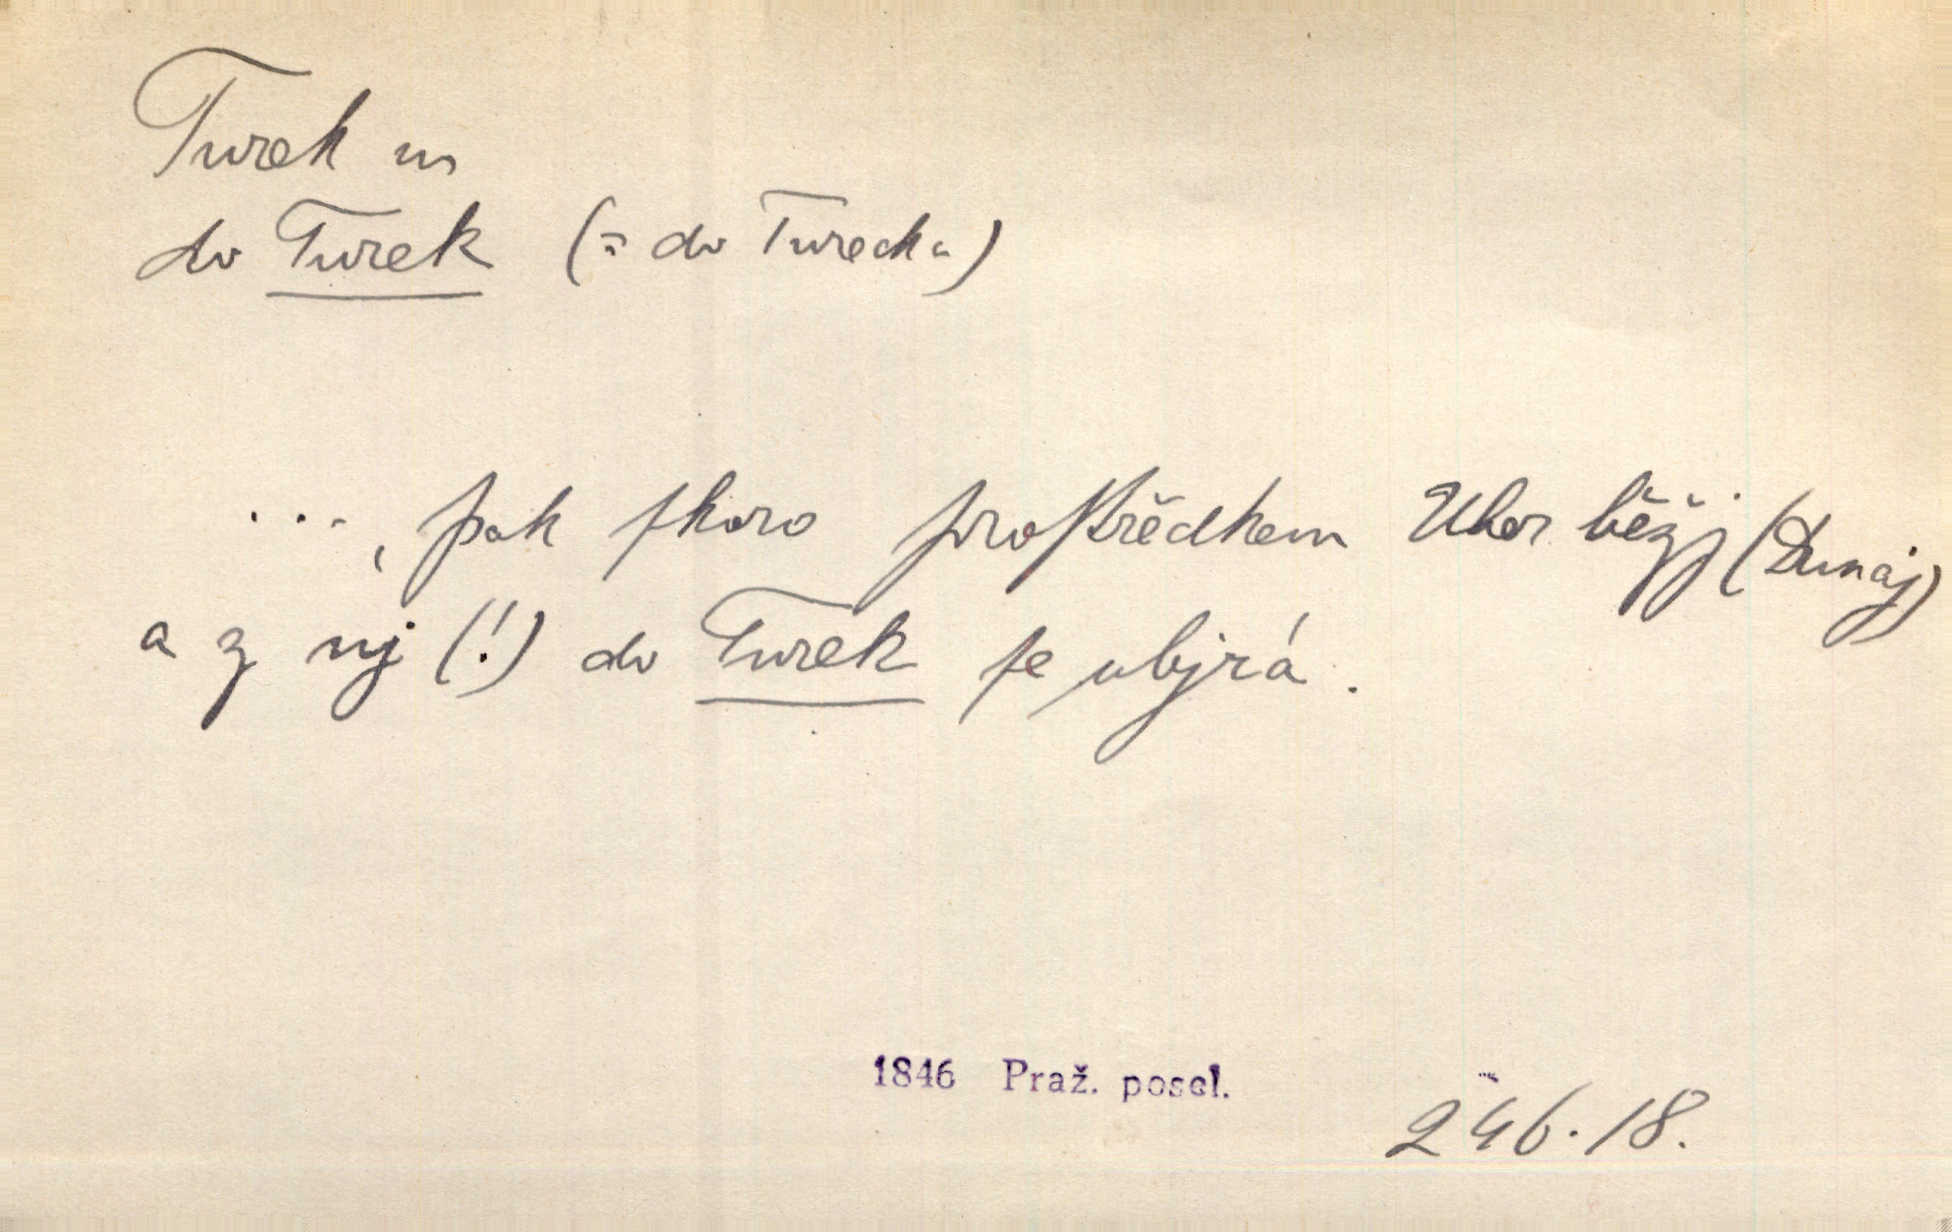 Turek m
do Turek (= do Turecka)
..., pak ſkoro proſtřědkem Uher běžj (Dunaj)
a z nj (!) do Turek ſe ubjrá.
1846 Praž. posel.
246.18.